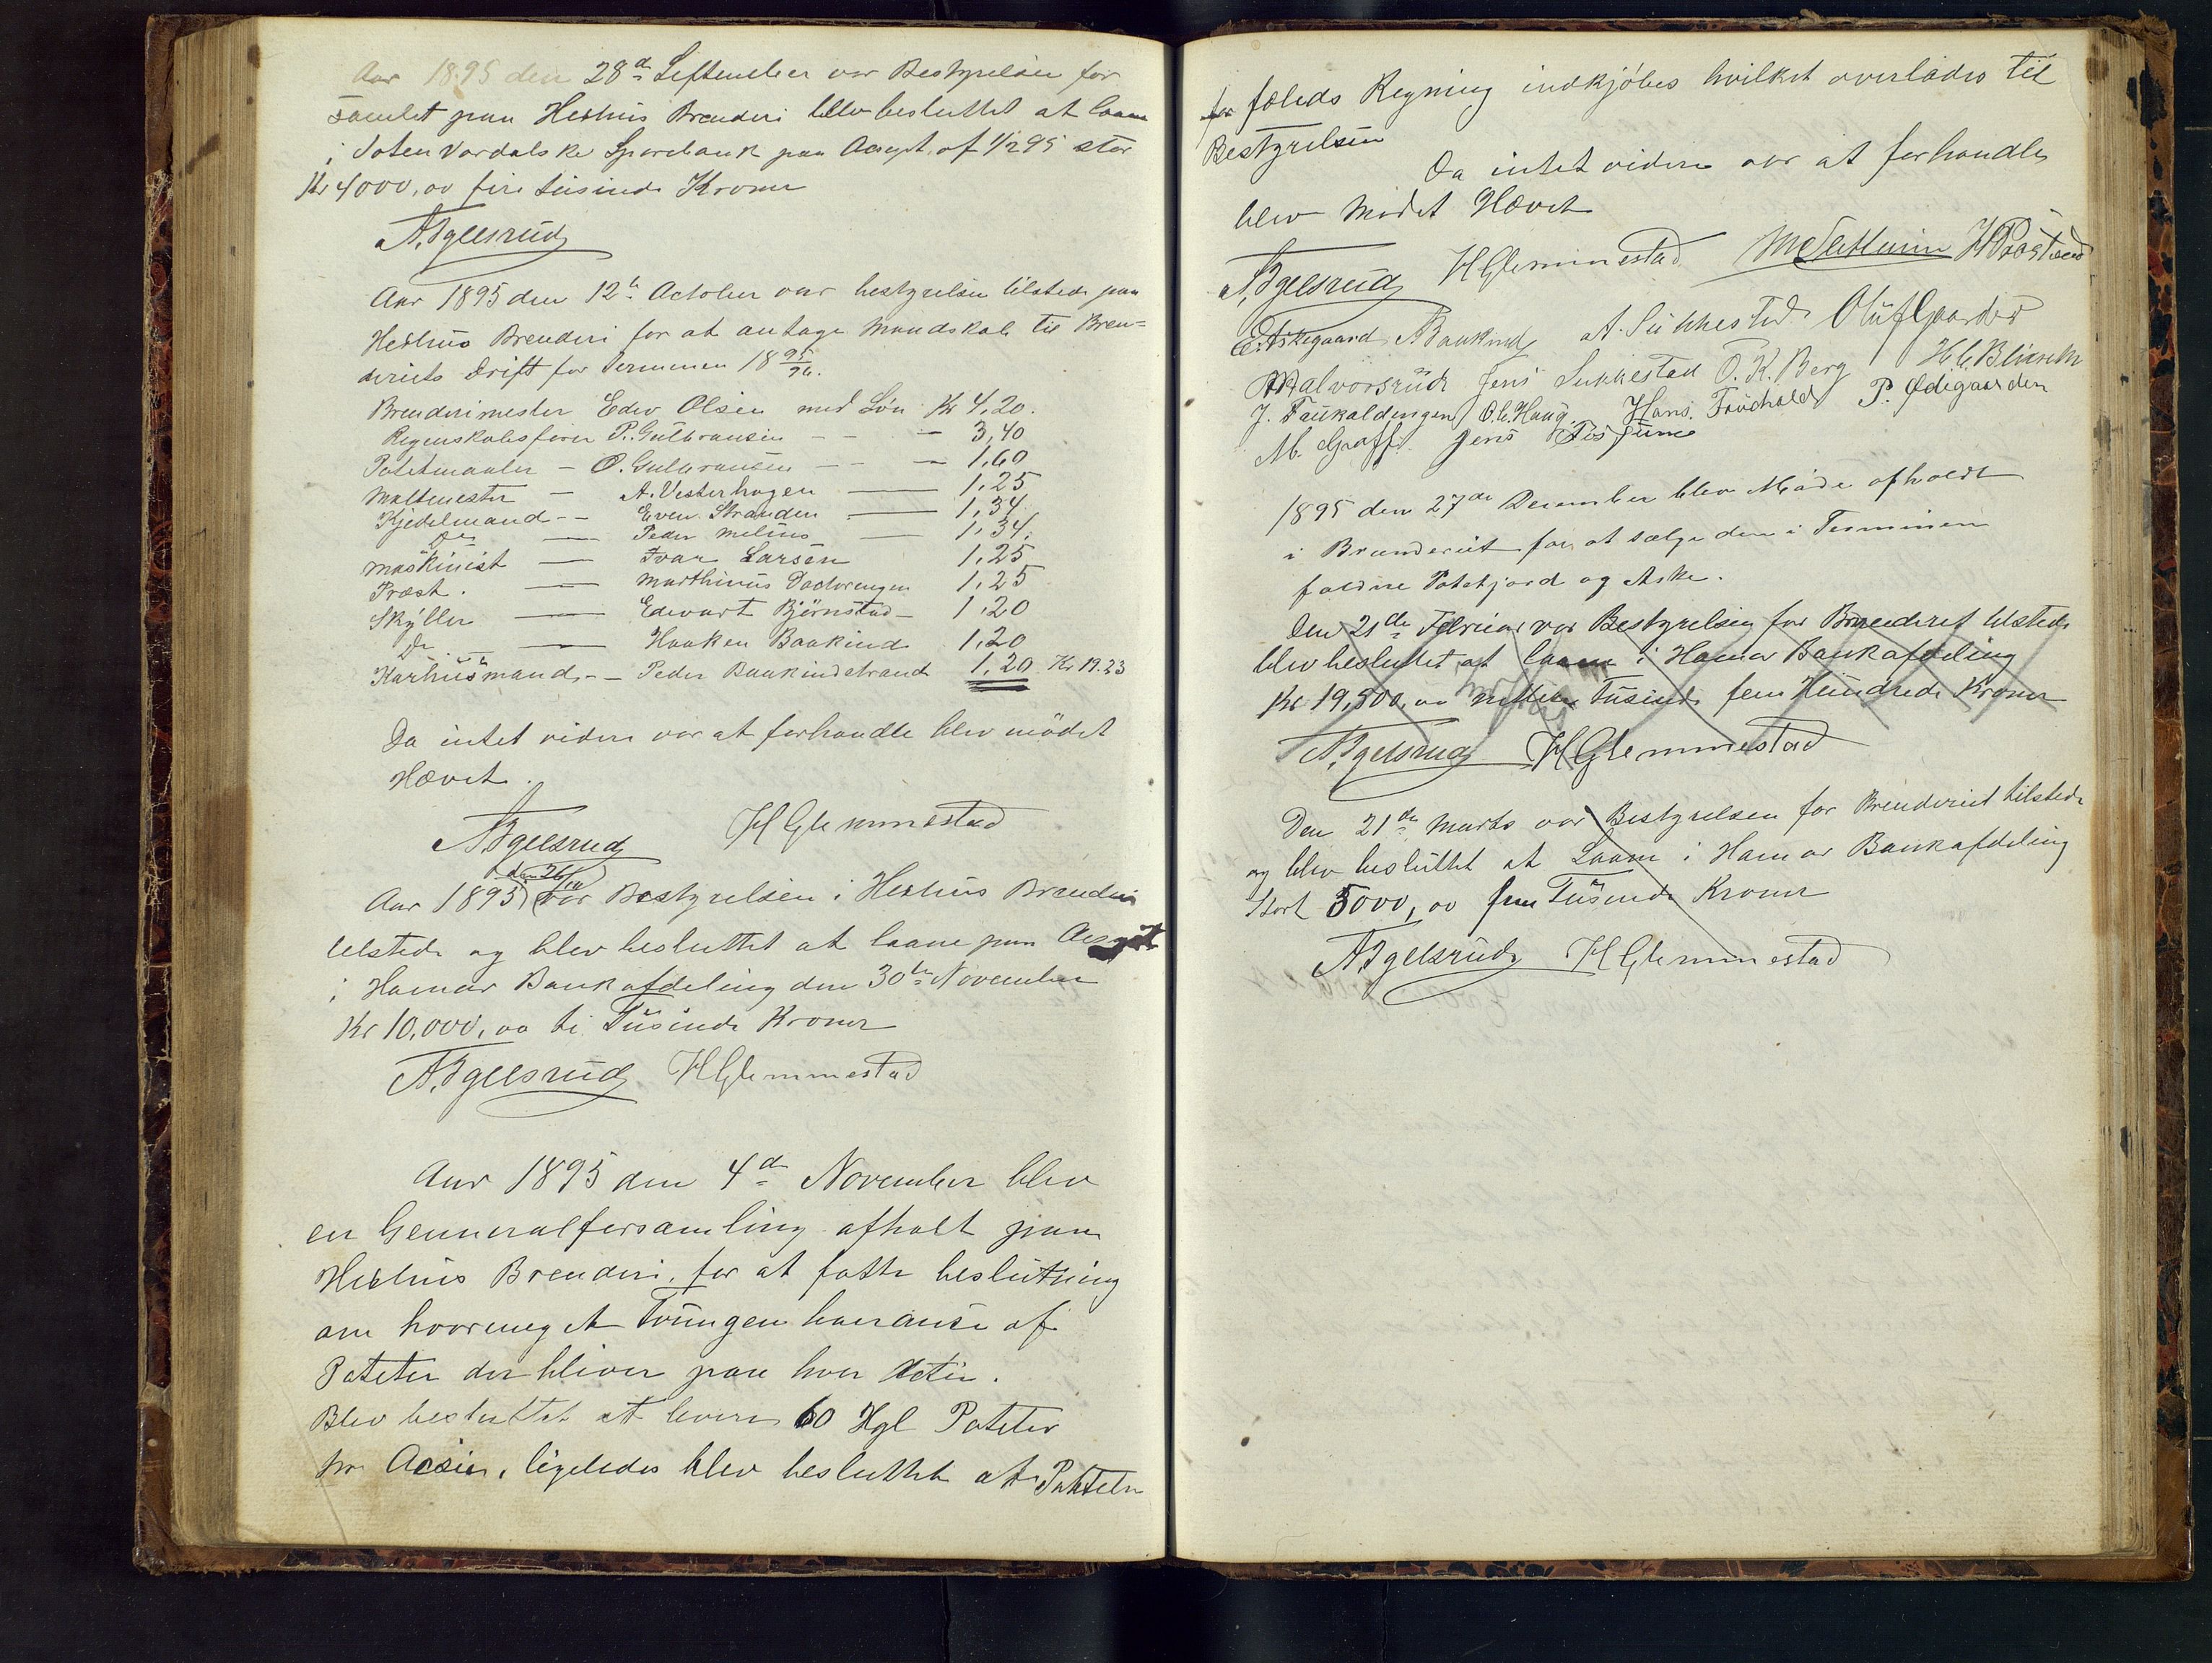 Aar 1895 den 28d September var Bestyrelsen for
samlet paa Heshus Brenderi blev besluttet at laane
i Toten Vardalske Sparebank paa Accept af 1/2 95 stor
Kr 4000,00 fire tusinde Kroner
A. Bgelsrud
Aar 1895 den 12te October var bestyrelsen tilstede paa
Heshus Brenderi for at antage Mandskab til Bren-
deriets Drift for Terminen 18 95/96.
Brenderimester Edv Olsen med Løn Kr 4,20.
Regenskabsfører P. Gulbransen - - — 3,40
Potetmaaler - O. Gulbransen - - — 1,60
Maltmester — A. Vesterhagen — 1,25
Kjedelmand - - Even Stranden — 1,34
Do — Peder Melius — 1,34.
maskinist — Ivar Larsen 1,25
Præst. — Marthinus Dadorengen 1,25
Skyller — Edvart Bjørnstad — 1,20
Do — — Haaken Baakind 1,20
Karhusmand - - Peder Baakindstrand 1,20 Kr 19.23
Da intet videre var at forhandle blev mødet
Hævet.
A. Bgelsrud H Glemmestad
den 26/10
Aar 1895 var Bestyrelsen i Heshus Brenderi
tilstede og blev besluttet at laane paa Accept
i Hamar Bankafdeling den 30te November
Kr 10,000,00 ti Tusinde Kroner
A. Bgelsrud H Glemmestad
Aar 1895 den 4d November blev
en Genneralforsamling afholt paa
Heshus Brenderi, for at fatte beslutning
om hvormeget Tvungen leverance af
Poteter der bliver paa hver Actie.
Blev besluttet at levere 60 Hgl Poteter
pr Acsie, ligeledes blev besluttet at Poteter
for fæleds Regning indkjøbes hvilket overlades til
Bestyrelsen
Da intet videre var at forhandles
blev Mødet Hævet
A. Bgelsrud H Glemmestad M Sletterin H Prøstved
E Askegaard. A Baakind A. Sukkestad Oluf Gaarder
A Halvorsrud Jens Sukkestad O. K. Berg H. C. Blixseth
J. Taukaldengen O. C. Haug Hans. Frøshold P. Ødegaarden
M. Graff. Jens
1895 den 27de December blev Møde afholdt
i Brænderiet for at sælge den i Terminen
faldne Potetjord og Aske.
Den 21de Februar var Bestyrelsen for Brenderiet tilstede
blev besluttet at laane i Hamar Bankafdeling
Kr 19,500,00 nitten Tusinde fem Hundrede Kroner
A. Bgelsrud H Glemmestad
Den 21de Marts var Bestyrelsen for Brenderiet tilstede
og blev besluttet at Laane i Hamar Bankafdeling
Stort 5000,00 fem Tusinde Kroner
A. Bgelsrud H Glemmestad